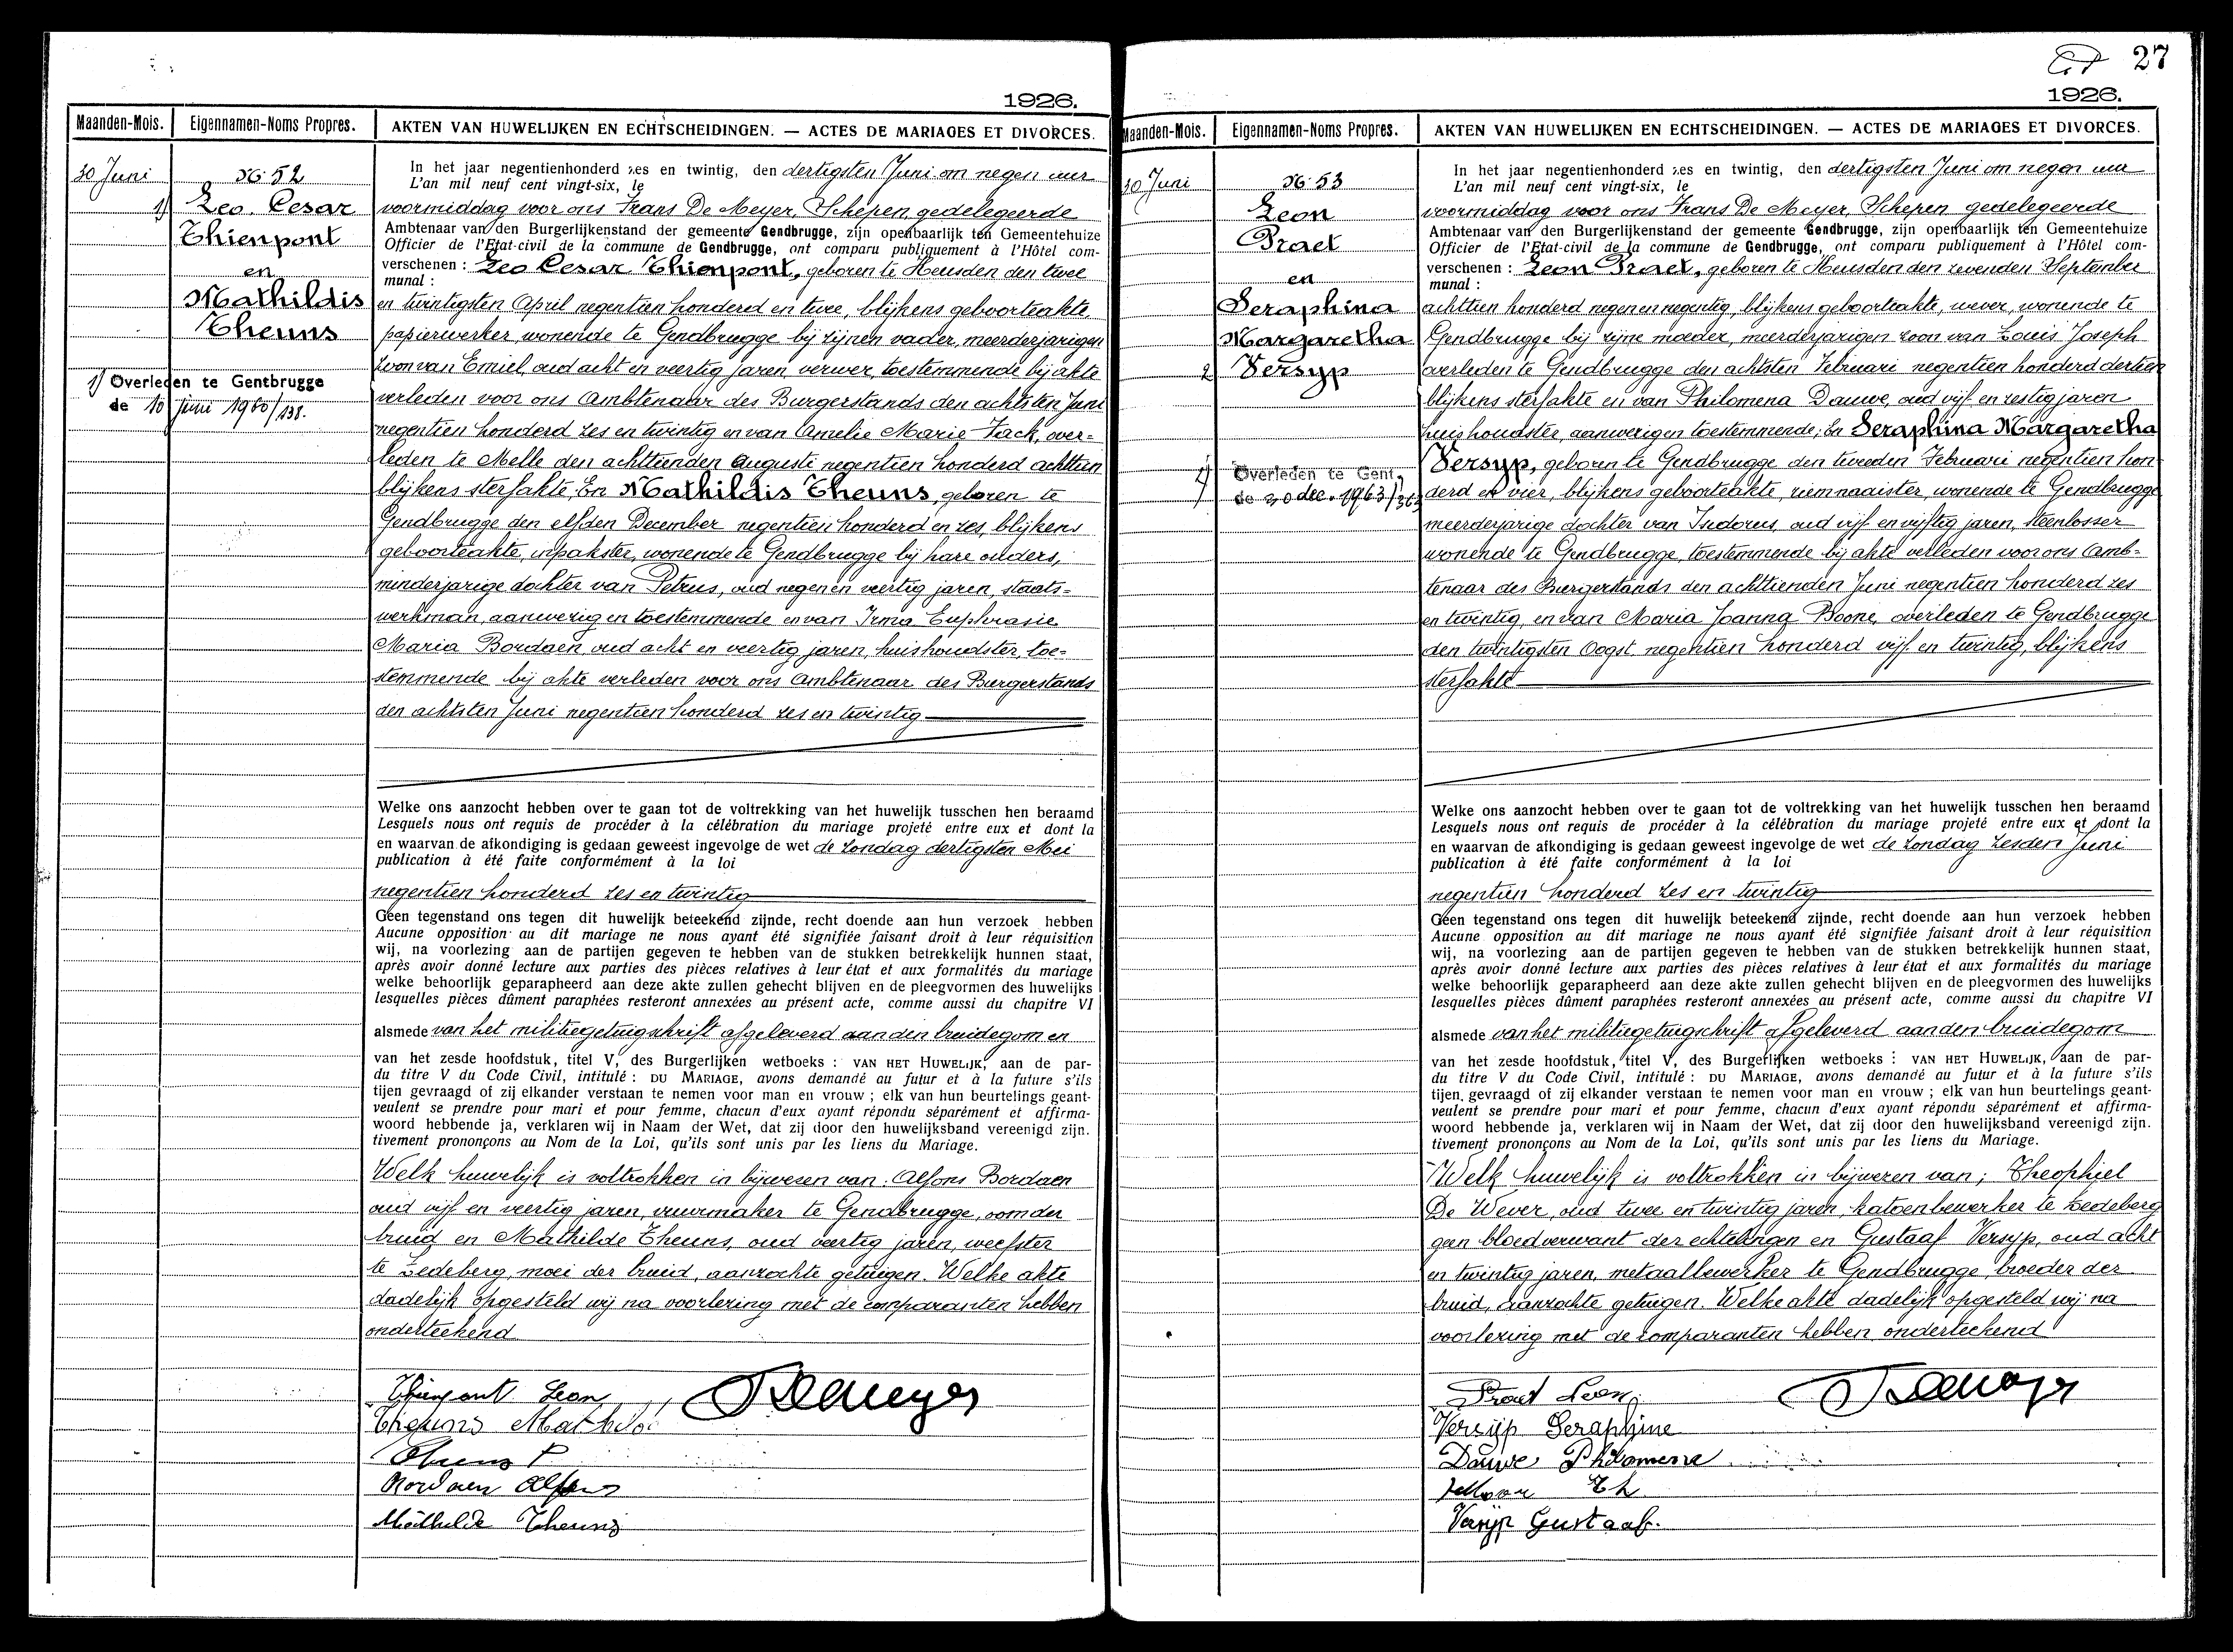 1926.
Maanden-Mois. Eigennamen-Noms Propres. AKTEN VAN HUWELIJKEN EN ECHTSCHEIDINGEN. — ACTES DE MARIAGES ET DIVORCES.
30 Juni
N° 52
1) Leo. Cesar
Thienpont
en
Mathildis
Theuns
1) Overleden te Gentbrugge
de 10 juni 1960/138.
In het jaar negentienhonderd zes en twintig, den dertigsten Juni om negen uur
L'an mil neuf cent vingt-six, le
voormiddag voor ons Frans De Meyer, Schepen gedelegeerde
Ambtenaar van den Burgerlijkenstand der gemeente Gendbrugge, zijn openbaarlijk ten Gemeentehuize
Officier de l'Etat-civil de la commune de Gendbrugge, ont comparu publiquement à l'Hôtel com-
verschenen : Leo Cesar Thienpont, geboren te Heusden den twee
munal :
en twintigsten April negentien honderd en twee, blijkens geboorteakte
papierwerker, wonende te Gendbrugge bij zijnen vader, meerderjarigen
zoon van Emiel, oud acht en veertig jaren, verwer, toestemmende bij akte
verleden voor ons Ambtenaar des Burgerstands den achtsten Juni
negentien honderd zes en twintig en van Amelie Marie Tack, over=
leden te Melle den achttienden Augusti negentien honderd achttien
blijkens sterfakte; En Mathildis Theuns, geboren te
Gendbrugge den elfden December negentien honderd en zes, blijkens
geboorteakte, inpakster, wonende te Gendbrugge bij hare ouders,
minderjarige dochter van Petrus, oud negen en veertig jaren, staats=
werkman, aanwezig en toestemmende en van Irma Euphrasie
Maria Bordaen oud acht en veertig jaren, huishoudster, toe=
stemmende bij akte verleden voor ons Ambtenaar des Burgerstands
den achtsten Juni negentien honderd zes en twintig
Welke ons aanzocht hebben over te gaan tot de voltrekking van het huwelijk tusschen hen beraamd
Lesquels nous ont requis de procéder à la célébration du mariage projeté entre eux et dont la
en waarvan de afkondiging is gedaan geweest ingevolge de wet de Zondag dertigsten Mei
publication à été faite conformément à la loi
negentien honderd zes en twintig
Geen tegenstand ons tegen dit huwelijk beteekend zijnde, recht doende aan hun verzoek hebben
Aucune opposition au dit mariage ne nous ayant été signifiée faisant droit à leur réquisition
wij, na voorlezing aan de partijen gegeven te hebben van de stukken betrekkelijk hunnen staat,
après avoir donné lecture aux parties des pièces relatives à leur état et aux formalités du mariage
welke behoorlijk geparapheerd aan deze akte zullen gehecht blijven en de pleegvormen des huwelijks
lesquelles pièces dûment paraphées resteront annexées au présent acte, comme aussi du chapitre VI
alsmede van het militiegetuigschrift afgeleverd aan den bruidegom en
van het zesde hoofdstuk, titel V, des Burgerlijken wetboeks : VAN HET HUWELIJK, aan de par-
du titre V du Code Civil, intitulé : DU MARIAGE, avons demandé au futur et à la future s'ils
tijen gevraagd of zij elkander verstaan te nemen voor man en vrouw ; elk van hun beurtelings geant-
veulent se prendre pour mari et pour femme, chacun d'eux ayant répondu séparément et affirma-
woord hebbende ja, verklaren wij in Naam der Wet, dat zij door den huwelijksband vereenigd zijn.
tivement prononçons au Nom de la Loi, qu'ils sont unis par les liens du Mariage.
Welk huwelijk is voltrokken in bijwesen van: Alfons Bordaen
oud vijf en veertig jaren, vuurmaker te Gendbrugge, oom der
bruid en Mathilde Theuns, oud veertig jaren, weefster
te Ledeberg, moei der bruid, aanzochte getuigen. Welke akte
dadelijk opgesteld wij na voorlezing met de comparanten hebben
onderteekend
Thienpont Leon
Theuns Mathild
Theuns P
Bordaen Alfons
Mathilde Theuns
FDeMeyer
27
1926.
Maanden-Mois. Eigennamen-Noms Propres. AKTEN VAN HUWELIJKEN EN ECHTSCHEIDINGEN. — ACTES DE MARIAGES ET DIVORCES.
30 Juni
N° 53
Leon
Praet
en
Seraphina
Margaretha
2 Versyp
Overleden te Gent,
de 30 dec. 1963/
In het jaar negentienhonderd zes en twintig, den dertigsten Juni om negen uur
L'an mil neuf cent vingt-six, le
voormiddag voor ons Frans De Meyer, Schepen gedelegeerde
Ambtenaar van den Burgerlijkenstand der gemeente Gendbrugge, zijn openbaarlijk ten Gemeentehuize
Officier de l'Etat-civil de la commune de Gendbrugge, ont comparu publiquement à l'Hôtel com-
verschenen : Leon Praet, geboren te Heusden den zevenden September
munal :
achttien honderd negen en negentig, blijkens geboorteakte, wever, wonende te
Gendbrugge bij zijne moeder, meerderjarigen zoon van Louis Joseph
overleden te Gendbrugge den achtsten Februari negentien honderd dertien
blijkens sterfakte en van Philomena Dauwe, oud vijf en zestig jaren
huishoudster, aanwezig en toestemmende; En Seraphina Margaretha
Versyp, geboren te Gendbrugge den tweeden Februari negentien hon
derd en vier, blijkens geboorteakte, riemnaaister, wonende te Gendbrugge
meerderjarige dochter van Isidorus, oud vijf en vijftig jaren, steenlosser
wonende te Gendbrugge, toestemmende bij akte verleden voor ons Amb=
tenaar des Burgerstands den achttienden Juni negentien honderd zes
en twintig, en van Maria Joanna Boone, overleden te Gendbrugge
den twintigsten Oogst negentien honderd vijf en twintig, blijkens
sterfakte
Welke ons aanzocht hebben over te gaan tot de voltrekking van het huwelijk tusschen hen beraamd
Lesquels nous ont requis de procéder à la célébration du mariage projeté entre eux et dont la
en waarvan de afkondiging is gedaan geweest ingevolge de wet de Zondag Zesden Juni
publication à été faite conformément à la loi
negentien honderd zes en twintig
Geen tegenstand ons tegen dit huwelijk beteekend zijnde, recht doende aan hun verzoek hebben
Aucune opposition au dit mariage ne nous ayant été signifiée faisant droit à leur réquisition
wij, na voorlezing aan de partijen gegeven te hebben van de stukken betrekkelijk hunnen staat,
après avoir donné lecture aux parties des pièces relatives à leur état et aux formalités du mariage
welke behoorlijk geparapheerd aan deze akte zullen gehecht blijven en de pleegvormen des huwelijks
lesquelles pièces dûment paraphées resteront annexées au présent acte, comme aussi du chapitre VI
alsmede van het militiegetuigschrift afgeleverd aan den bruidegom
van het zesde hoofdstuk, titel V, des Burgerlijken wetboeks : VAN HET HUWELIJK, aan de par-
du titre V du Code Civil, intitulé : DU MARIAGE, avons demandé au futur et à la future s'ils
tijen gevraagd of zij elkander verstaan te nemen voor man en vrouw ; elk van hun beurtelings geant-
veulent se prendre pour mari et pour femme, chacun d'eux ayant répondu séparément et affirma-
woord hebbende ja, verklaren wij in Naam der Wet, dat zij door den huwelijksband vereenigd zijn.
tivement prononçons au Nom de la Loi, qu'ils sont unis par les liens du Mariage.
Welk huwelijk is voltrokken in bijwezen van; Theophiel
De Wever, oud twee en twintig jaren, katoenbewerker te Ledeberg
geen bloedverwant der echtelingen en Gustaaf Versyp, oud acht
en twintig jaren, metaalbewerker te Gendbrugge, broeder der
bruid, aanzochte getuigen. Welke akte dadelijk opgesteld wij na
voorlezing met de comparanten hebben onderteekend
Praet Leon
Versijp Seraphine
Dauwe Philomene
Th
Versyp Gustaaf.
FDeMeyer